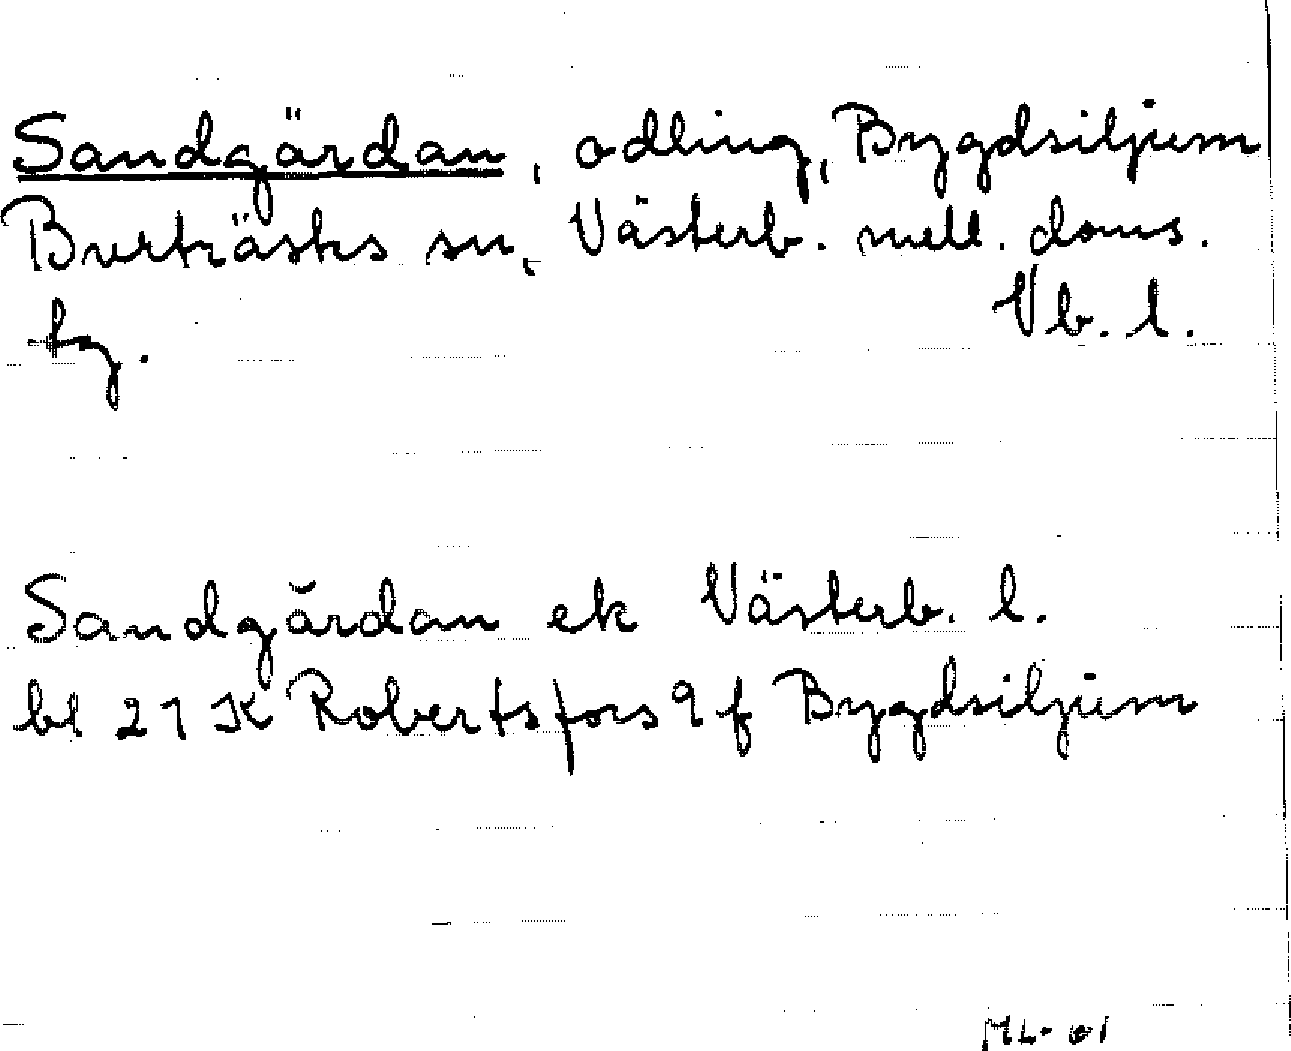 Sandgärdan, odling, Bygdsiljum
Burträsks sn, Västerb. mell. doms.
fg. Vb. l.
Sandgärdan ek Västerb. l.
bl 21 K Robertsfors 9 f Bygdsiljum
ML-01